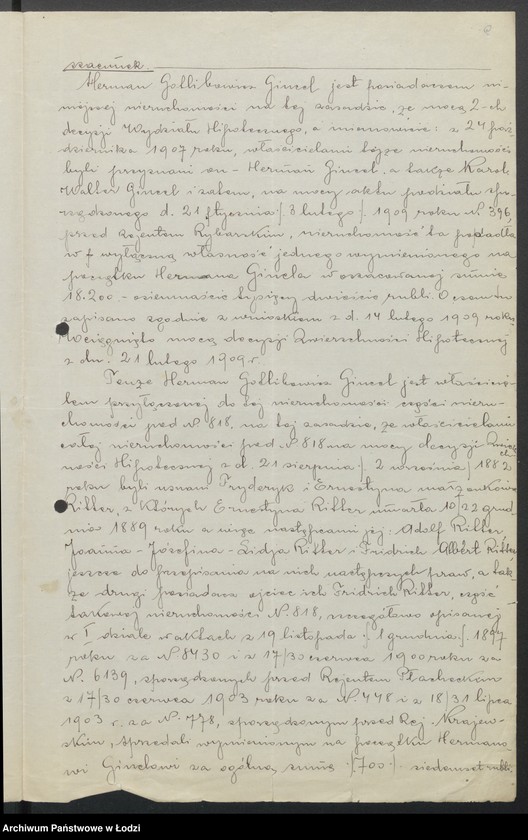 szacunek.
Herman Gottlibowicz Gincel jest posiadaczem ni-
niejszej nieruchomości na tej zasadzie, że mocą 2-ch
decyzji Wydziału Hipotecznego, a mianowicie: z 24 paź
dziernika 1907 roku, właścicielami tejże nieruchomości
byli przyznani on - Herman Gincel, a także Karol
Walter Gincel i zatem, na mocy aktu podziału spo-
rządzonego d. 21 stycznia /: 3 lutego /: 1909 roku N. 396,
przed Rejentem Rybarskim, nieruchomość ta popadła
w wyłączną własność jednego wymienionego na
początku Hermana Gincla w oszacowanej sumie
18.200.- osiemnaście tysięcy dwieście rubli. O czem
zapisano zgodnie z wnioskiem z d. 14 lutego 1909 roku.
Wciągnięto mocą decyzji Zwierzchności Hipotecznej
z dn. 21 lutego 1909 r.
Tenże Herman Gottlibowicz Gincel jest właścicie-
lem przyłączonej do tej nieruchomości części nieru-
chomości pod N 818, na tej zasadzie, że właścicielami
całej nieruchomości pod N 818 na mocy decyzji Zwierzch
ności Hipotecznej z d. 21 sierpnia /: 2 września /: 1882
roku byli uznani Fryderyk i Ernestyna małżonkowie
Ritter, z których Ernestyna Ritter umarła 10/22 grud
nia 1889 roku a więc następcami jej: Adolf Ritter
Joanna-Józefina-Lidja Ritter i Fridrich Albert Ritter
jeszcze do przepisania na nich następczych praw, a tak
że drugi posiadacz ojciec ich Fridrich Ritter, część
takowej nieruchomości N 818, szczegółowo opisanej
w I dziale w aktach z 19 listopada /: 1 grudnia /: 1897
roku za N 8430 i z 17/30 czerwca 1900 roku za
N. 6139, sporządzonych przed Rejentem Płacheckim
z 17/30 czerwca 1903 roku za N. 448 i z 18/31 lipca
1903 r. za N. 778, sporządzonym przed Rej. Krajew-
skim, sprzedali wymienionemu na początku Hermano
wi Ginclowi za ogólną sumę /: 700 /: siedemset rubli.
Archiwum Państwowe w Łodzi